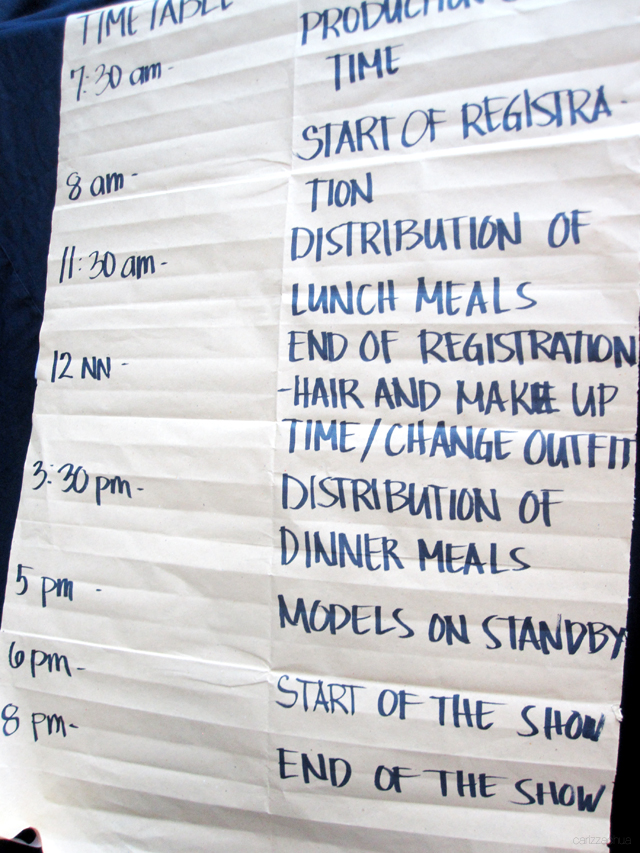 TIME TABLE
PRODUCTION
7:30 am - TIME
START OF REGISTRA-
8 am - TION
11:30 am - DISTRIBUTION OF
LUNCH MEALS
12 NN - END OF REGISTRATION
-HAIR AND MAKE UP
TIME/CHANGE OUTFIT
3:30 pm - DISTRIBUTION OF
DINNER MEALS
5 pm - MODELS ON STANDBY
6pm - START OF THE SHOW
8 pm - END OF THE SHOW